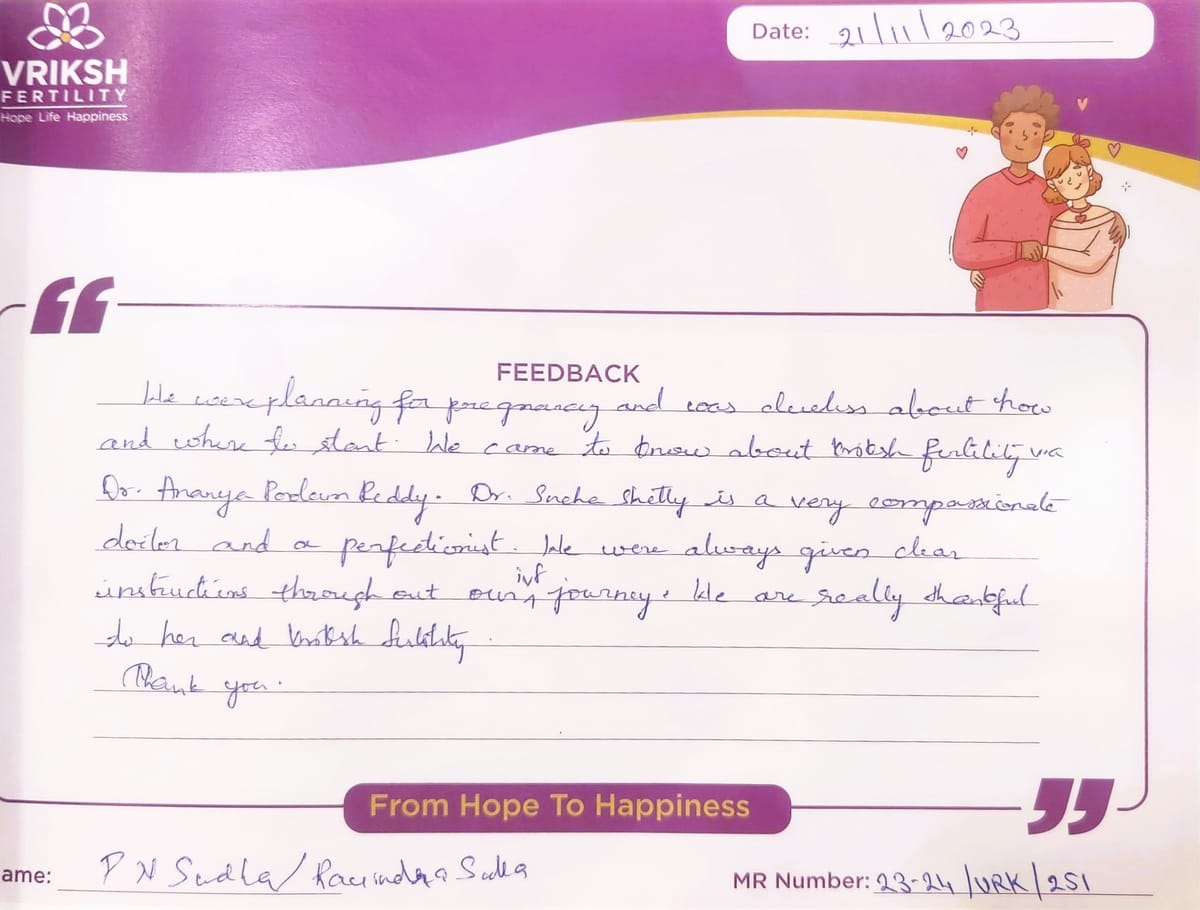 VRIKSH
FERTILITY
Hope Life Happiness
Date: 21/11/2023
FEEDBACK
We were planning for pregnancy and was clueless about how
and where to start. We came to know about Vriksh fertility via
Dr. Ananya Reddy. Dr. Sneha Shetty is a very compassionate
doctor and a perfectionist. We were always given clear
instructions through out our ivf journey. We are really thankful
to her and Vriksh fertility.
Thank you.
From Hope To Happiness
ame: P N Sudha/ Ravindra
MR Number: 23-24/VRK/251